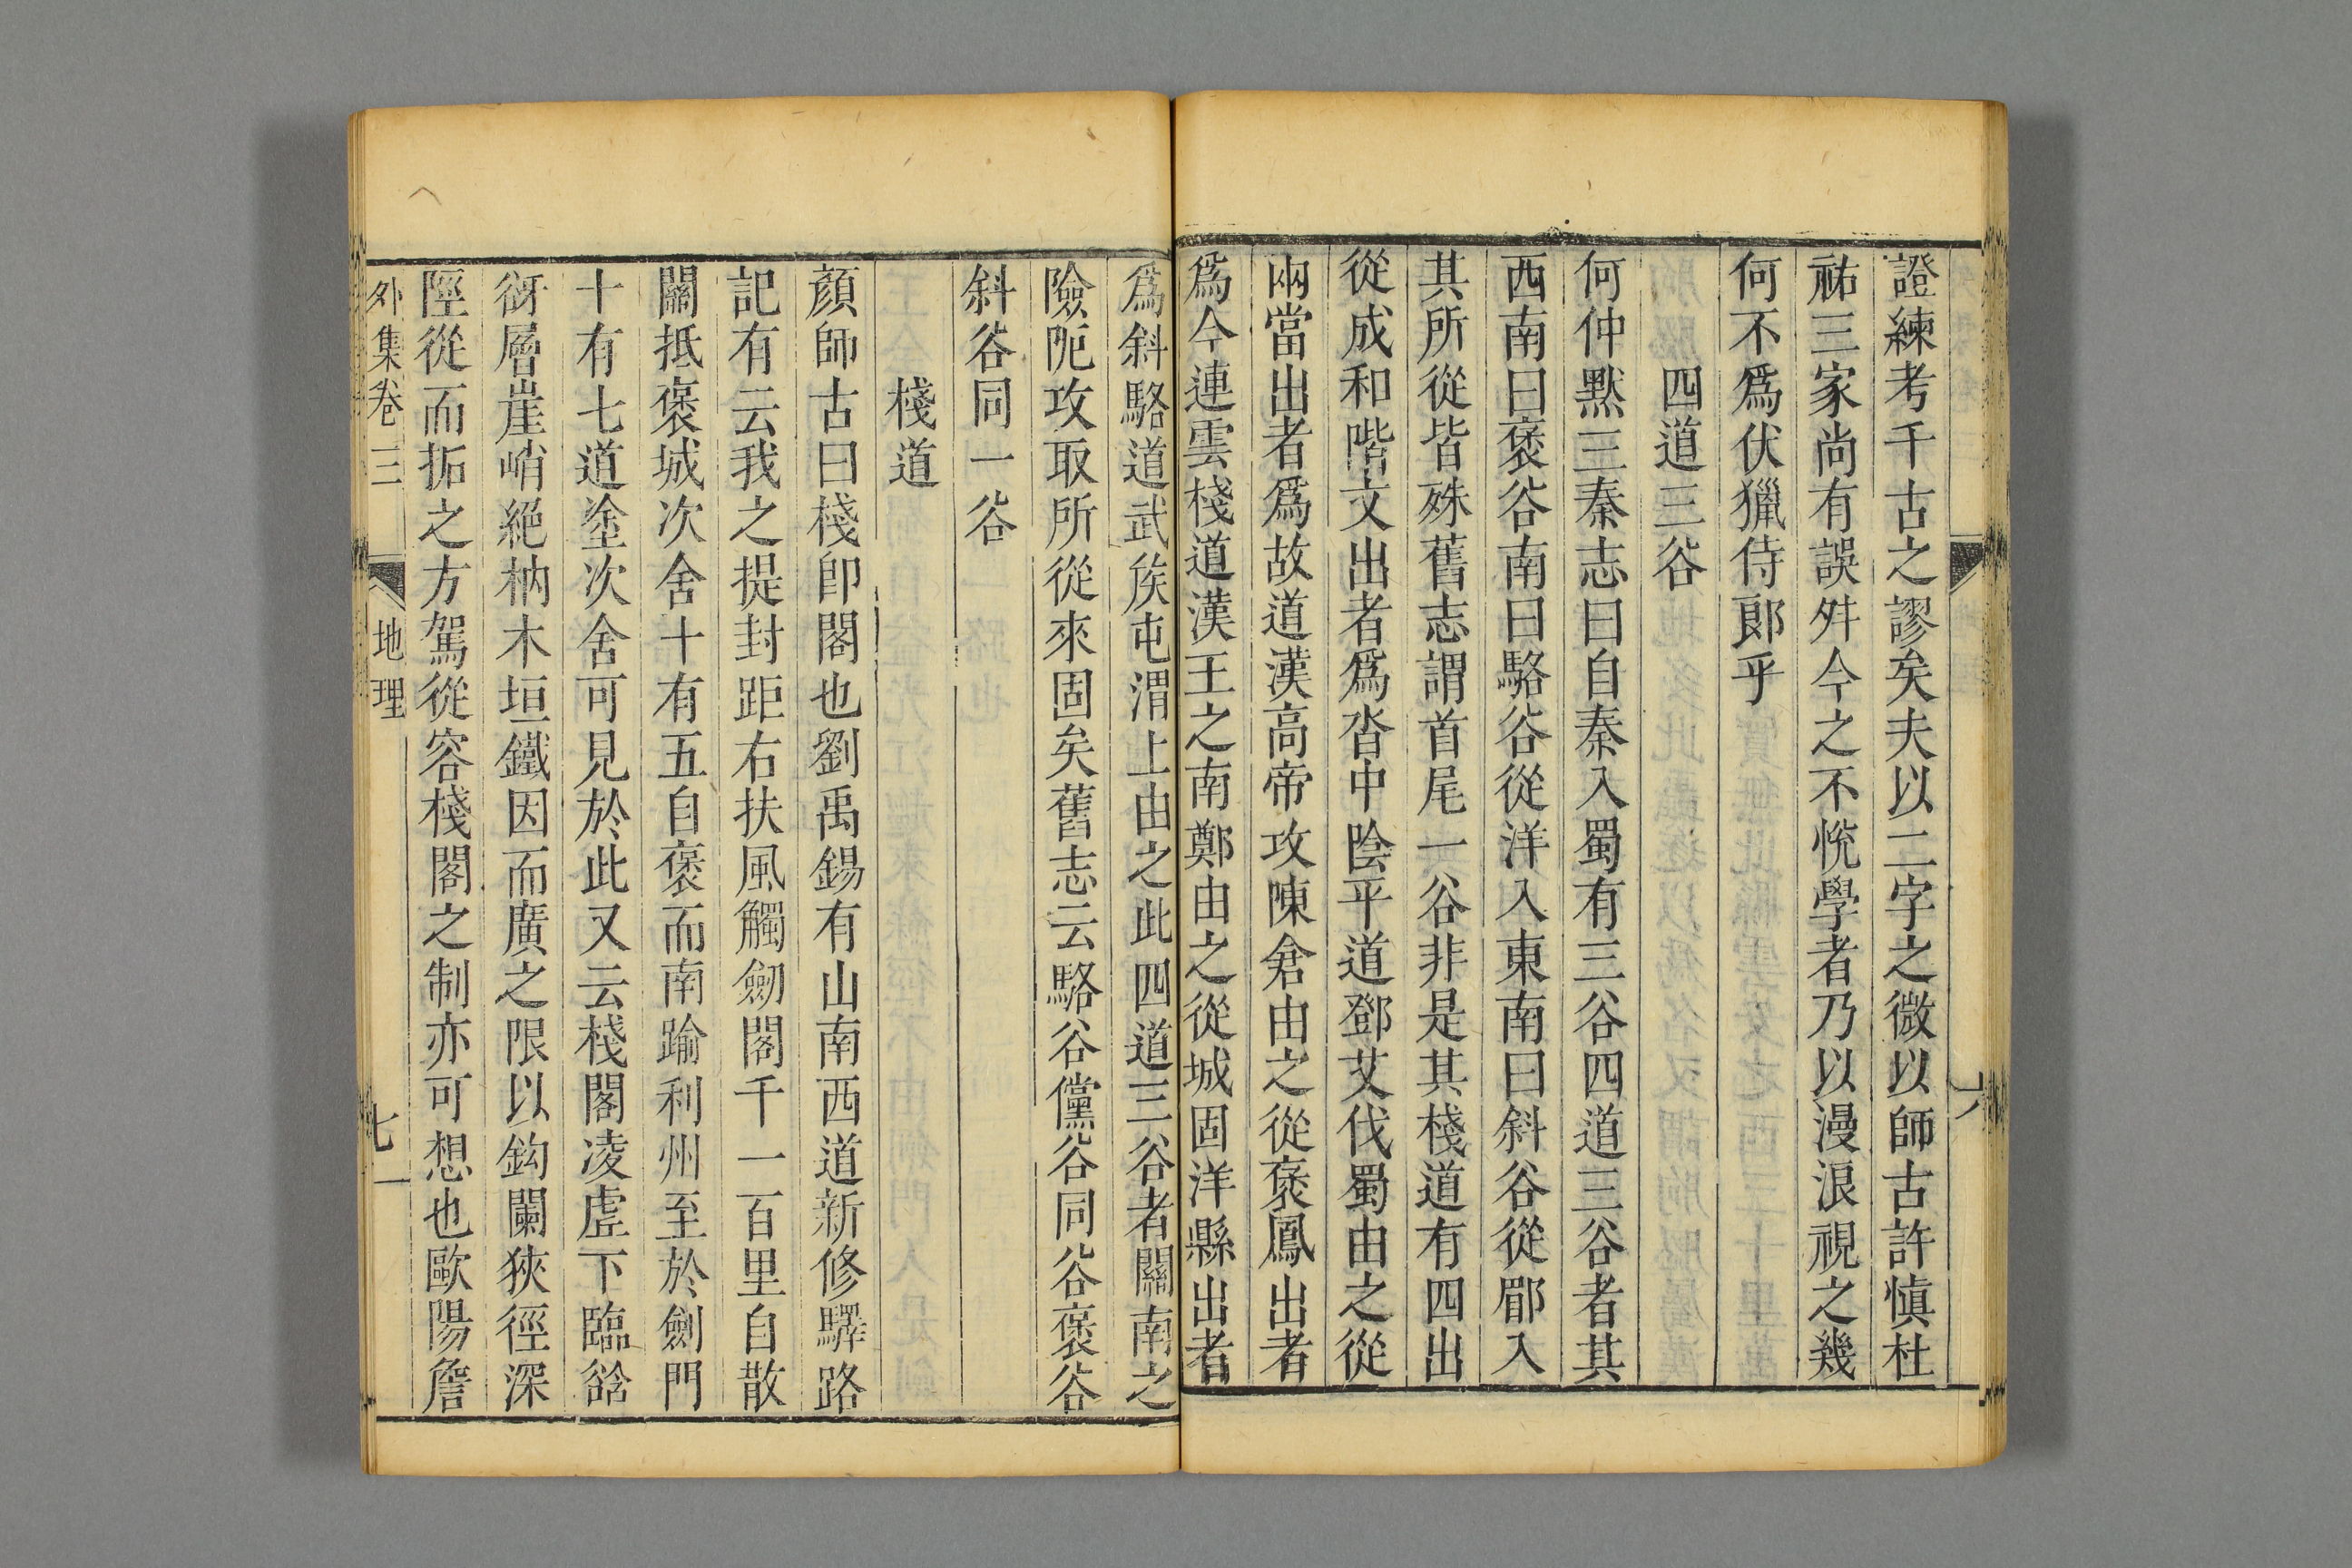 證練考千古之謬矣夫以二字之微以師古許慎杜
祐三家尚有誤舛今之不悅學者乃以漫浪視之幾
何不爲伏獵侍郎乎
四道三谷
何仲默三秦志曰自秦入蜀有三谷四道三谷者其
西南曰褒谷南曰駱谷從洋入東南曰斜谷從郿入
其所從皆殊舊志謂首尾一谷非是其棧道有四出
從成和階文出者爲沓中陰平道鄧艾伐蜀由之從
兩當出者爲故道漢高帝攻陳倉由之從褒鳳出者
爲今連雲棧道漢王之南鄭由之從城固洋縣出者
爲斜駱道武矦屯渭上由之此四道三谷者關南之
險阨攻取所從來固矣舊志云駱谷儻谷同谷褒谷
斜谷同一谷
棧道
顏師古曰棧卽閣也劉禹錫有山南西道新修驛路
記有云我之提封距右扶風觸劒閣千一百里自散
關抵褒城次舍十有五自褒而南踰利州至於劍門
十有七道塗次舍可見於此又云棧閣凌虛下臨谽
谺層崖峭絕枘木垣鐵因而廣之限以鈎闌狹徑深
陘從而拓之方駕從容棧閣之制亦可想也歐陽詹
外集卷三 地理 七一